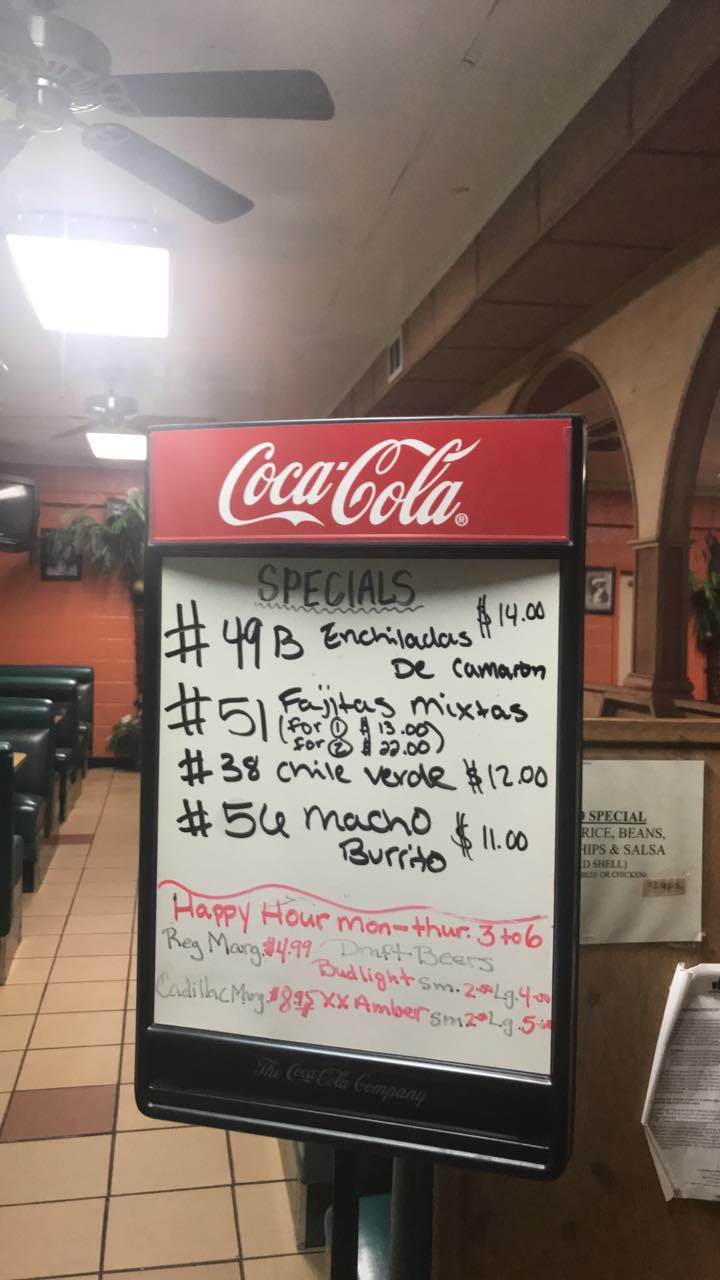 Coca-Cola®
SPECIALS
# 49B Enchiladas $14.00
De Camaron
# 51 Fajitas mixtas
(for ① $ 13.00)
for ② $ 22.00)
# 38 chile verde $12.00
# 56 macho $11.00
Burrito
Happy Hour mon-thur. 3 to 6
Reg Marg. $4.99 Draft-Beers
Budlight sm. 2.00 Lg. 4.00
Cadillac Marg. $8.95 XX Amber sm 2.00 Lg. 5.00
The Coca-Cola Company
SPECIAL
RICE, BEANS,
HIPS & SALSA
D SHELL)
BEEF OR CHICKEN)